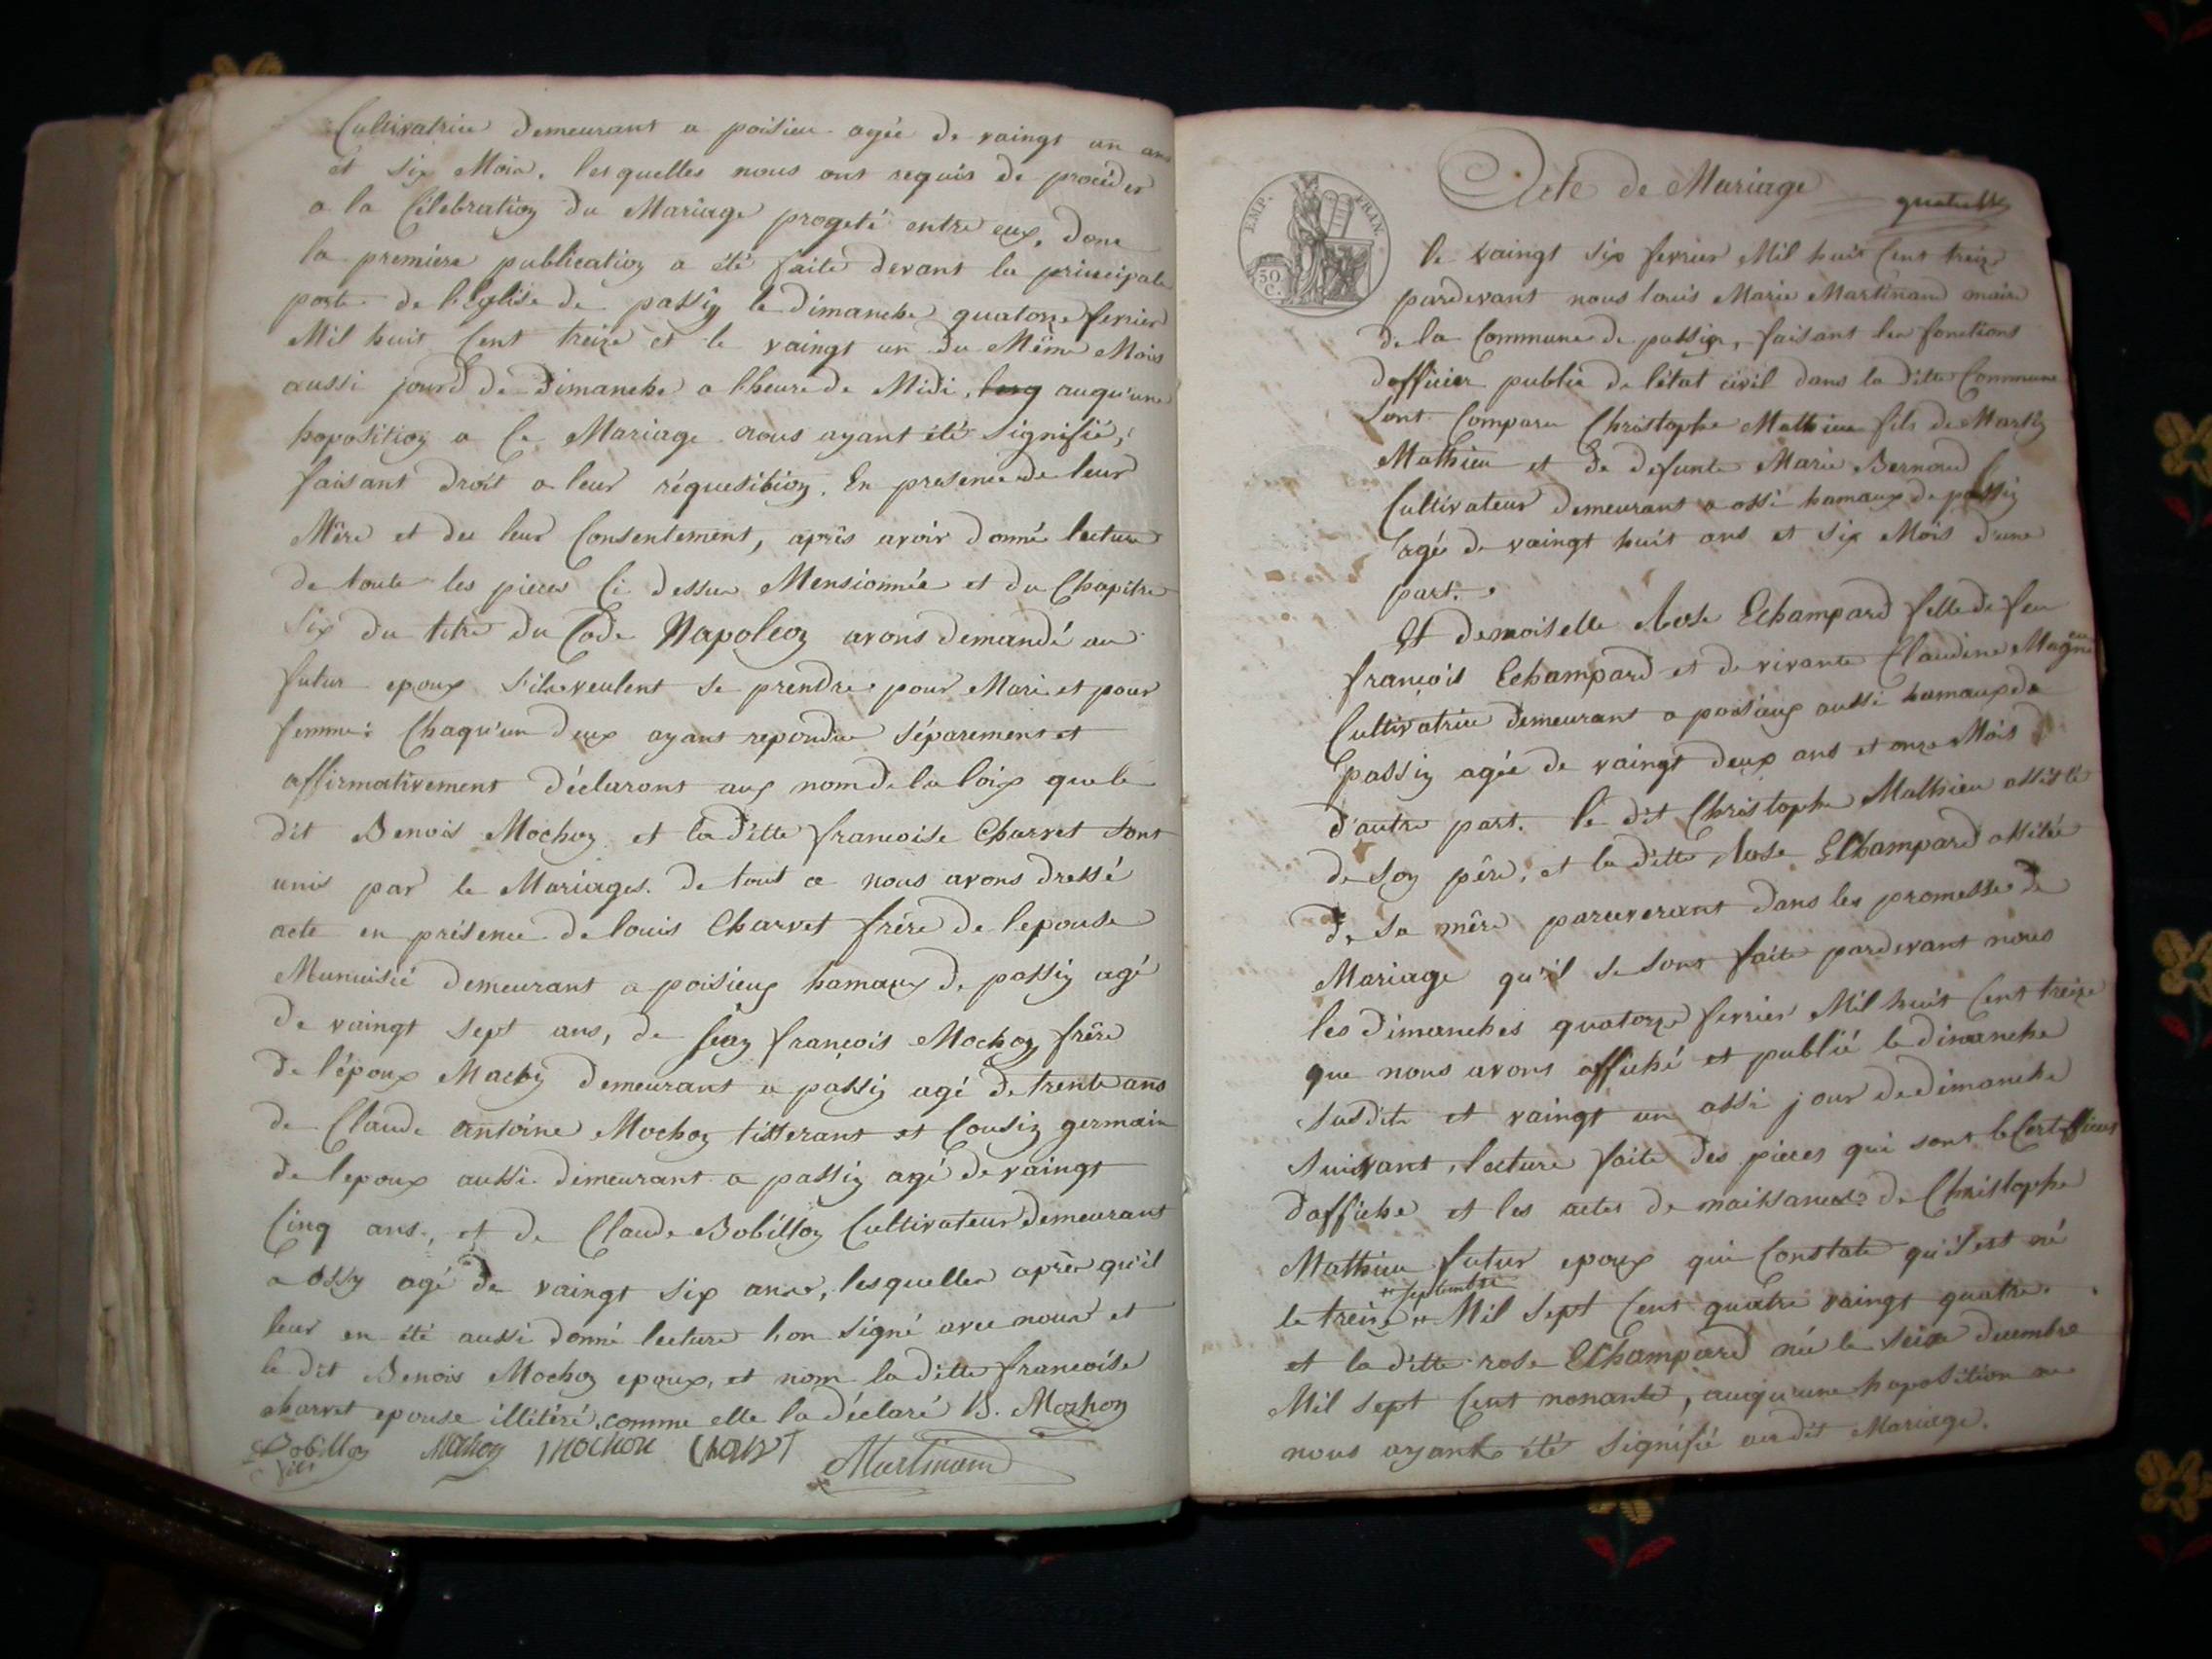 Cultivatrice demeurant a poisieu agée de vaingt un ans
et six Mois. les quelles nous ont requis de procéder
a la Célebration du Mariage progeté entre eux, donc
la premiere publication a été faite devant la principale
porte de l'Eglise de passin le dimanche quatorze fevrier
Mil huit Cent treize et le vaingt un du Même Mois
aussi jourd de Dimanche a l'heure de Midi, auqu'une
hoposition a Ce Mariage nous ayant été Signifié,
faisant droit a leur réquesition. En presence de leur
Mère et du leur Consentement, après avoir donné lecture
de toute les pieces Ci dessus Mensionnée et du Chapitre
Six du titre du Code Napoleon avons demandé au
futur epoux s'ils veulent se prendre pour Mari et pour
femme: Chaqu'un deux ayant repondu séparement et
affirmativement déclarons aux nom de la loix que le
dit Benois Mochon et la ditte francoise Charvet sont
unis par le Mariages. De tout ce nous avons dressé
acte en présence de louis Charvet frère de l'epouse
Munuisié demeurant a poisieux hamaux de passin agé
de vaingt sept ans, de Jean françois Mochon frère
de l'époux Macon demeurant a passin agé de trente ans
de Claude antoine Mochon tisserant et Cousin germain
de lepoux aussi demeurant a passin agé de vaingt
Cinq ans, et de Claude Bobillon Cultivateur demeurant
a ossy agé de vaingt six ans, lesquelles après qu'il
leur en été aussi donné lecture l'on signé avec nous et
le dit Benois Mochon epoux, et nom la ditte francoise
charvet epouse illitéré, comme elle la déclaré B. Mochon
Bobillon Mochon mochon Charvet Martinand
fils
Acte de Mariage
EMP. FRAN.
50 C.
le vaingt six fevrier Mil huit Cent treize
pardevant nous louis Marie Martinand maire
de la Commune de passin, faisant les fonctions
dofficier public de létat civil dans la ditte Commune
sont Comparu Christophe Mathieu fils de Martin
Mathieu et de defunte Marie Bernond
Cultivateur demeurant a ossi hamaux de passin
agé de vaingt huit ans et six Mois d'une
part.
Et demoiselle Rose Echampard fille de feu
françois Echampard et de vivante Claudine Magnin
Cultivatrice demeurant a poisieux aussi hamaux de
passin agée de vaingt deux ans et onze Mois
d'autre part. le dit Christophe Mathieu assisté
de son père, et la ditte Rose Echampard assistée
de sa mère paruverant dans les promesse de
Mariage qu'il se sont faite pardevant nous
les dimanches quatorze fevrier Mil huit Cent treize
que nous avons affiché et publié le dimanche
susdite et vaingt un ossi jour de dimanche
suivant, lecture faite des pieces qui sont le Certifficat
d'affiche et les actes de naissances de Christophe
Mathieu futur epoux qui Constate qu'il est né
septembre
le treize Mil sept Cent quatre vaingt quatre.
et la ditte rose Echampard née le seize decembre
Mil sept Cent nonante, auqu'une hoposition ne
nous ayant été Signifié audit Mariage.